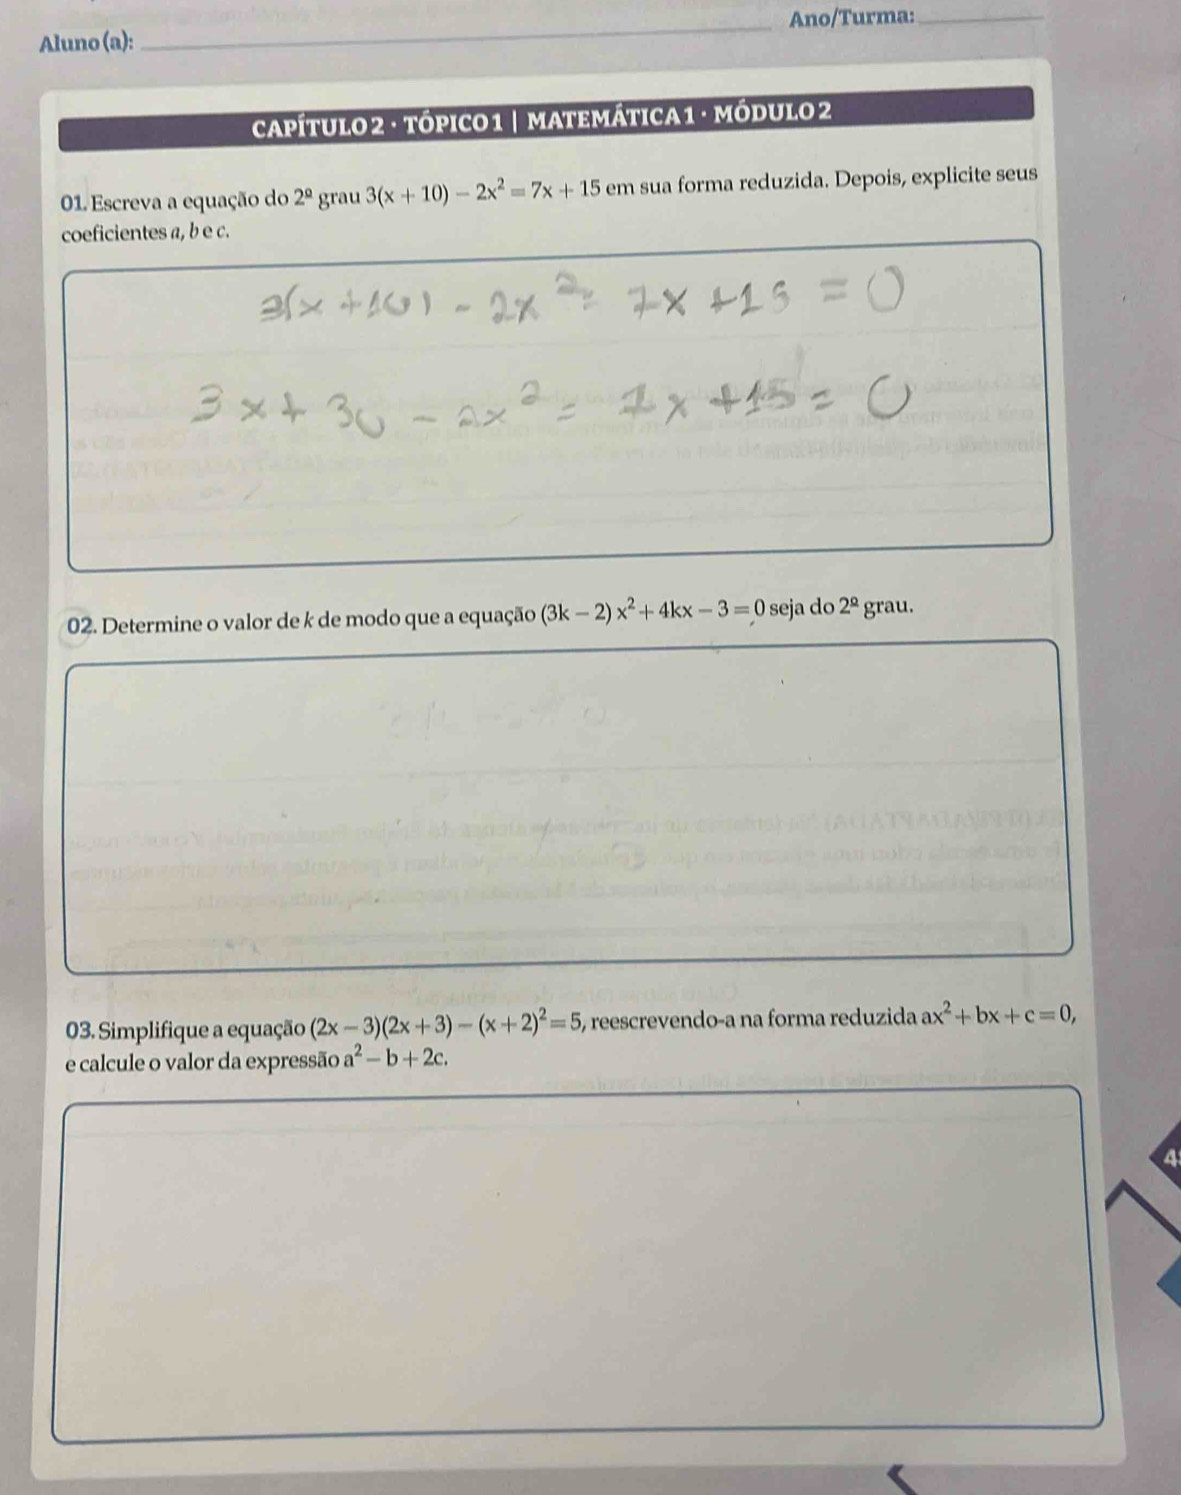 Ano/Turma:
Aluno(a):
CAPÍTULO 2 · TÓPICO 1 | MATEMÁTICA 1 · MÓDULO 2
01. Escreva a equação do 2º grau 3(x + 10) − 2x² = 7x + 15 em sua forma reduzida. Depois, explicite seus
coeficientes a, b e c.
3(x + 10) - 2x² = 7x + 15 = 0
3x + 30 - 2x² = 7x + 15 = 0
02. Determine o valor de k de modo que a equação (3k − 2) x² + 4kx − 3 = 0 seja do 2º grau.
03. Simplifique a equação (2x − 3)(2x + 3) − (x + 2)² = 5, reescrevendo-a na forma reduzida ax² + bx + c = 0,
e calcule o valor da expressão a² − b + 2c.